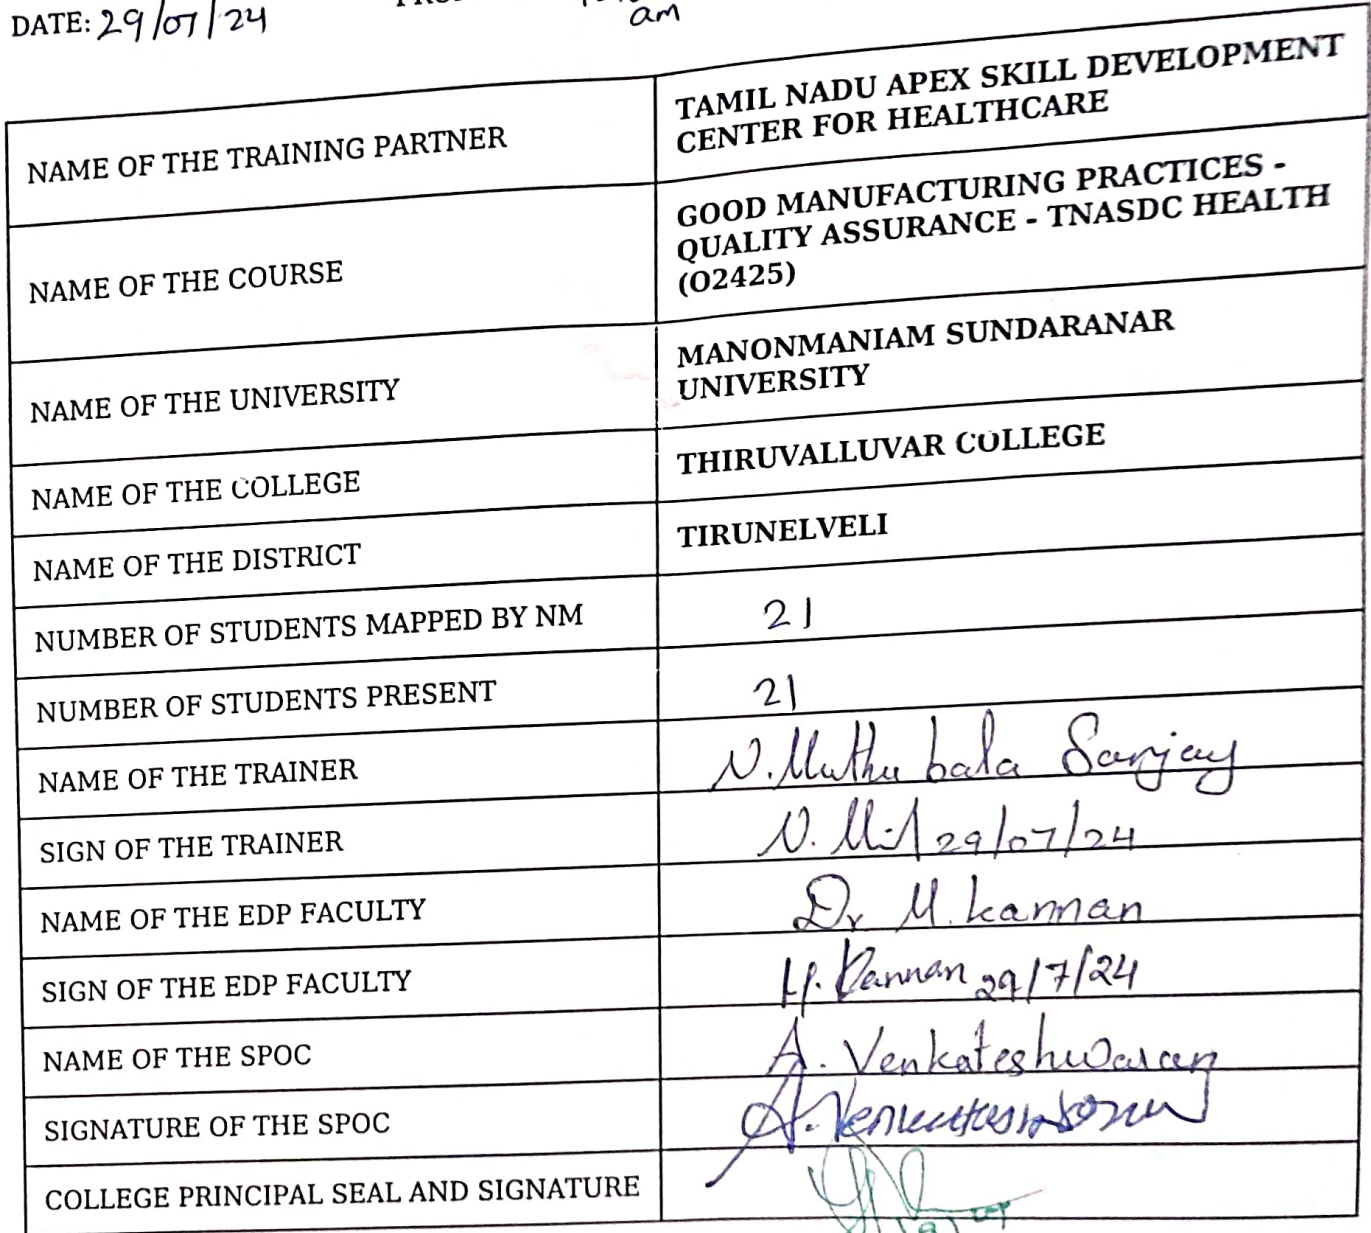 DATE: 29/07/24
am
NAME OF THE TRAINING PARTNER
TAMIL NADU APEX SKILL DEVELOPMENT
CENTER FOR HEALTHCARE
NAME OF THE COURSE
GOOD MANUFACTURING PRACTICES -
QUALITY ASSURANCE - TNASDC HEALTH
(O2425)
NAME OF THE UNIVERSITY
MANONMANIAM SUNDARANAR
UNIVERSITY
NAME OF THE COLLEGE
THIRUVALLUVAR COLLEGE
NAME OF THE DISTRICT
TIRUNELVELI
NUMBER OF STUDENTS MAPPED BY NM
21
NUMBER OF STUDENTS PRESENT
21
NAME OF THE TRAINER
N. Muthu bala Sanjay
SIGN OF THE TRAINER
29/07/24
NAME OF THE EDP FACULTY
Dr M. kannan
SIGN OF THE EDP FACULTY
M. Kannan 29/7/24
NAME OF THE SPOC
A. Venkateshwaran
SIGNATURE OF THE SPOC
COLLEGE PRINCIPAL SEAL AND SIGNATURE